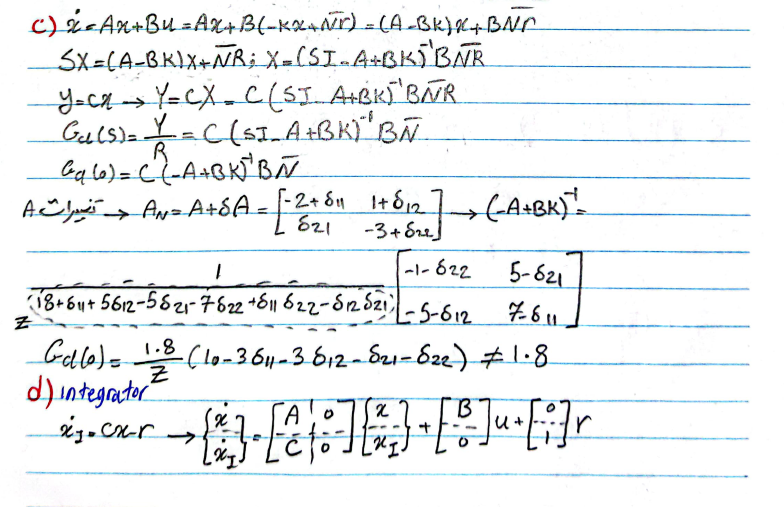 c) ẋ = Ax+Bu = Ax+B(-Kx+N̄r) = (A-BK)x+BN̄r
SX=(A-BK)X+N̄R ; X=(SI-A+BK)⁻¹BN̄R
y=cx → Y=CX = C(SI-A+BK)⁻¹BN̄R
Gcl(s)= Y/R = C(SI-A+BK)⁻¹BN̄
Gcl(0)= C(-A+BK)⁻¹BN̄
تغییرات A → A_N = A+δA = [-2+δ11 1+δ12; δ21 -3+δ22] → (-A+BK)⁻¹=
1/(18+δ11+5δ12-5δ21-7δ22+δ11δ22-δ12δ21) [-1-δ22 5-δ21; -5-δ12 7-δ11]
Z
Gcl(0)= 1.8/Z (10-3δ11-3δ12-δ21-δ22) ≠ 1.8
d) integrator
ẋ_I = Cx-r → {ẋ; ẋ_I} = [A 0; C 0]{x; x_I} + [B; 0]u + [0; 1]r